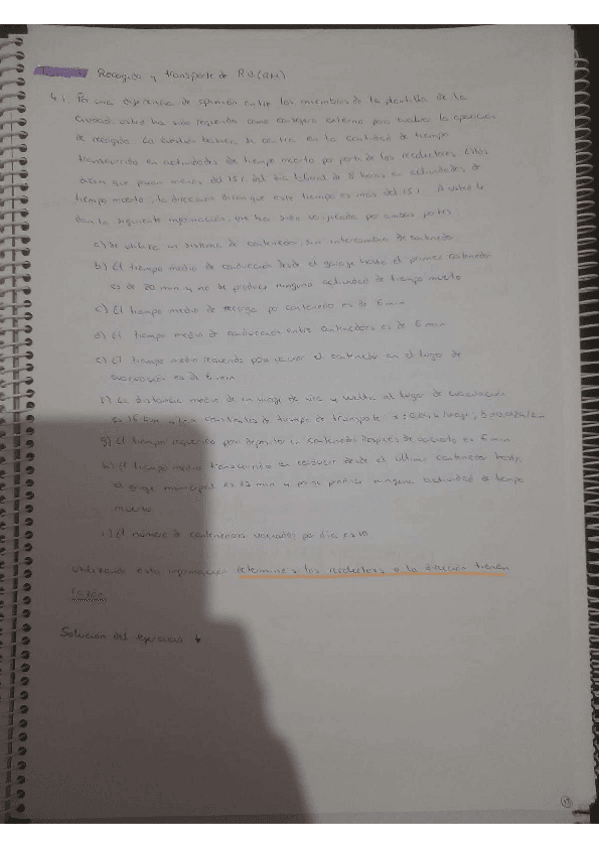 Recogida y transporte de RU(RM)
4. Por una diferencia de opinión entre los miembros de la plantilla de la
ciudad, usted ha sido requerido como consejero externo para evaluar la operación
de recogida. La cuestión básica se centra en la cantidad de tiempo
transcurrido en actividades de tiempo muerto por parte de los recolectores. Ellos
dicen que pasan menos del 15% del día laboral de 8 horas en actividades de
tiempo muerto; la dirección dicen que este tiempo es más del 15%. A usted le
dan la siguiente información, que ha sido verificada por ambas partes
a) Se utiliza un sistema de contenedor sin intercambio de contenedor
b) El tiempo medio de conducción desde el garaje hasta el primer contenedor
es de 20 min y no se produce ninguna actividad de tiempo muerto
c) El tiempo medio de recogida por contenedor es de 6 min
d) El tiempo medio de conducción entre contenedores es de 6 min
e) El tiempo medio requerido para vaciar el contenedor en el lugar de
evacuación es de 6 min
f) La distancia media de un viaje de ida y vuelta al lugar de evacuación
es 16 km y las constantes de tiempo de transporte
g) El tiempo requerido para depositar un contenedor después de vaciarlo es 6 min
h) El tiempo medio transcurrido en conducir desde el último contenedor hasta
el garaje municipal es min y no se produce ninguna actividad de tiempo
muerto
i) El número de contenedores vaciados por día es 10
Utilizando esta información determine si los recolectores o la dirección tienen
razón
Solución del ejercicio ↓